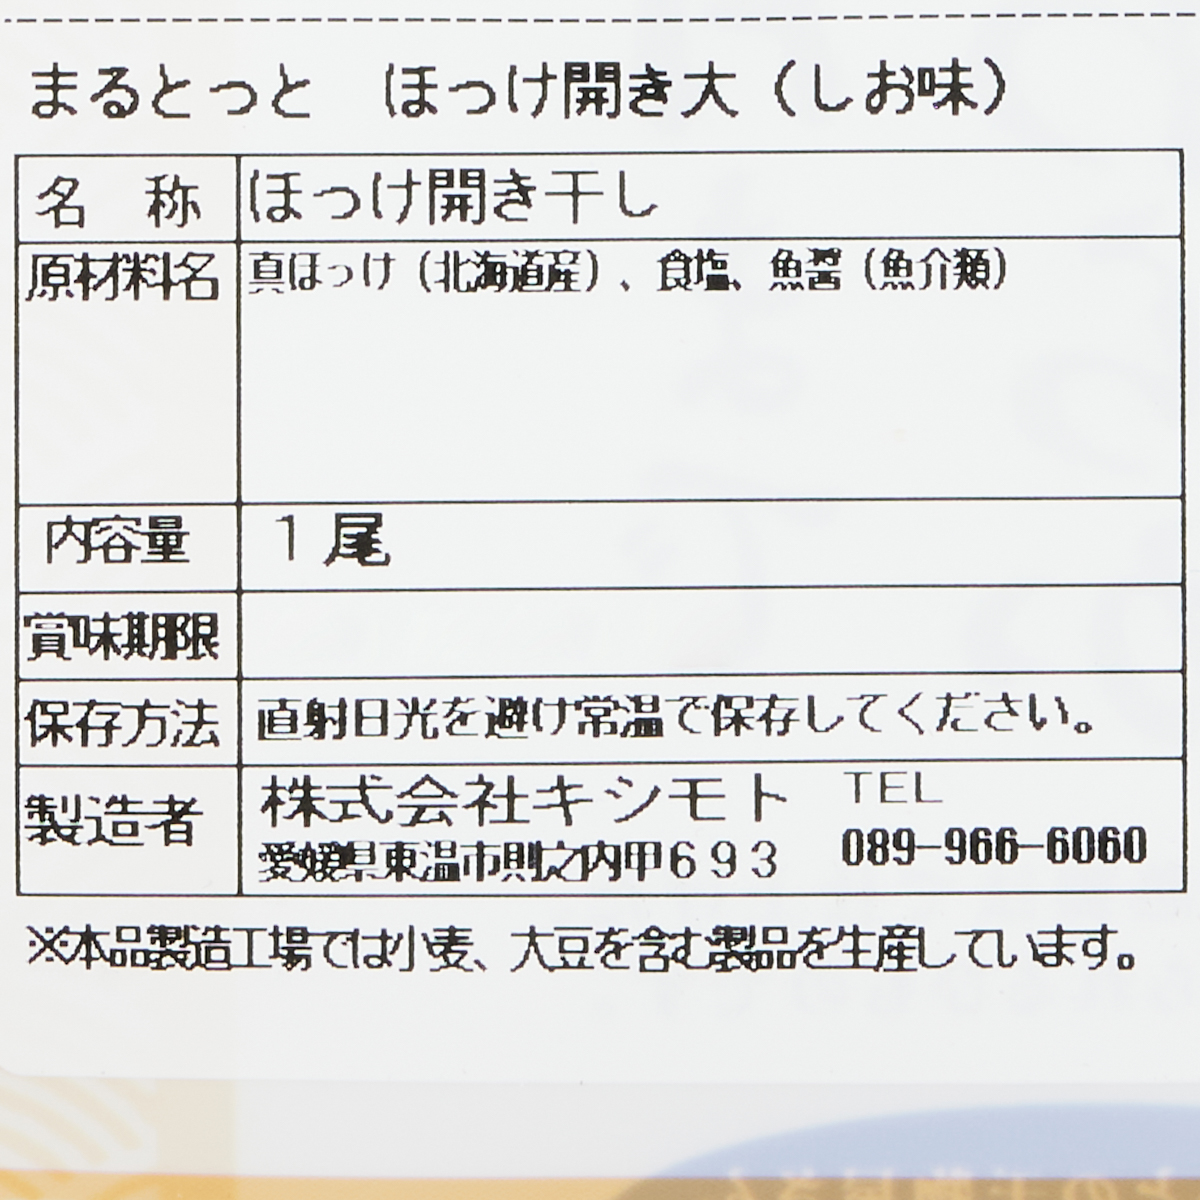 まるとっと　ほっけ開き大（しお味）
名　称　ほっけ開き干し
原材料名　真ほっけ（北海道産）、食塩、魚醤（魚介類）
内容量　１尾
賞味期限
保存方法　直射日光を避け常温で保存してください。
製造者　株式会社キシモト　TEL
愛媛県東温市則之内甲６９３　089-966-6060
※本品製造工場では小麦、大豆を含む製品を生産しています。